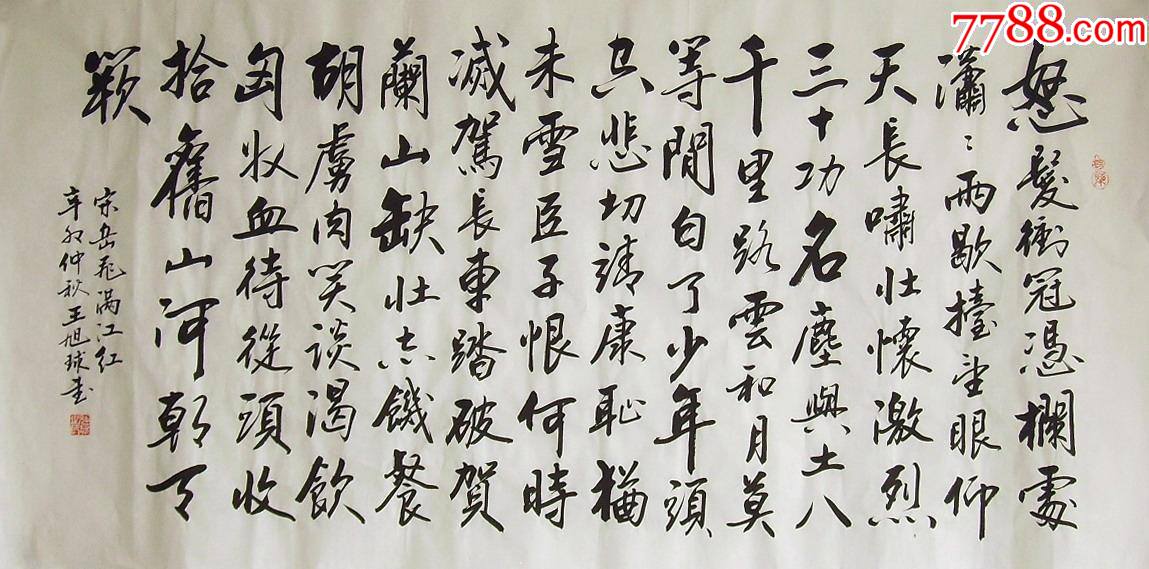 7788.com
怒髮衝冠憑欄處
瀟〻雨歇擡望眼仰
天長嘯壯懷激烈
三十功名塵與土八
千里路雲和月莫
等閒白了少年頭
空悲切靖康恥猶
未雪臣子恨何時
滅駕長車踏破賀
蘭山缺壯志饑餐
胡虜肉笑談渴飲
匈奴血待從頭收
拾舊山河朝天
闕
宋岳飛滿江紅
辛卯仲秋王旭球書